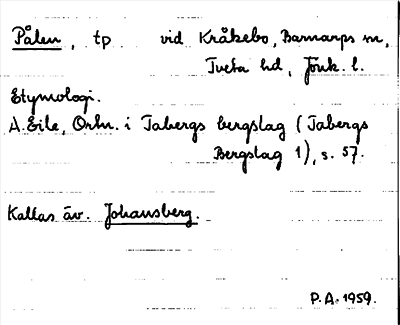 Pålen, tp vid Kråkebo, Barnarps sn,
Tveta hd, Jönk. l.
Etymologi.
A. Eile, Ortn. i Tabergs bergslag (Tabergs
Bergslag 1), s. 57.
Kallas äv. Johansberg.
P.A. 1959.